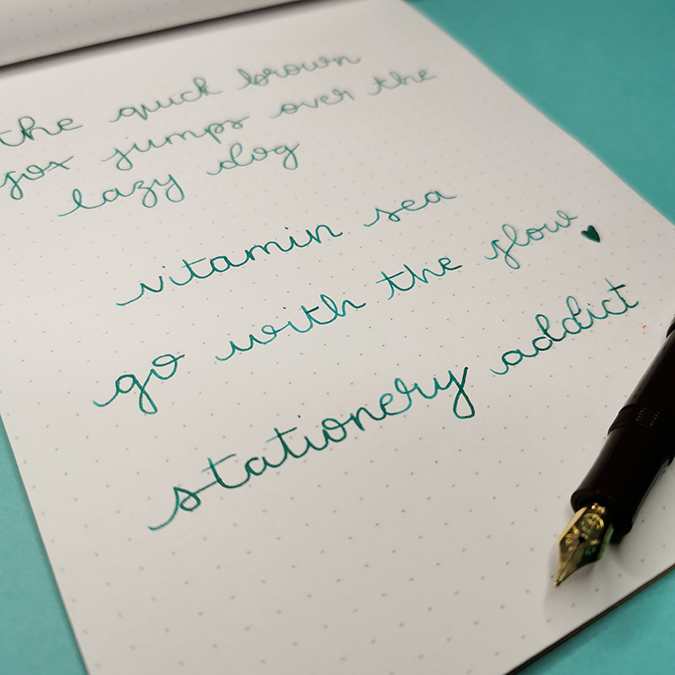 the quick brown
fox jumps over the
lazy dog
vitamin sea
go with the flow
stationery addict